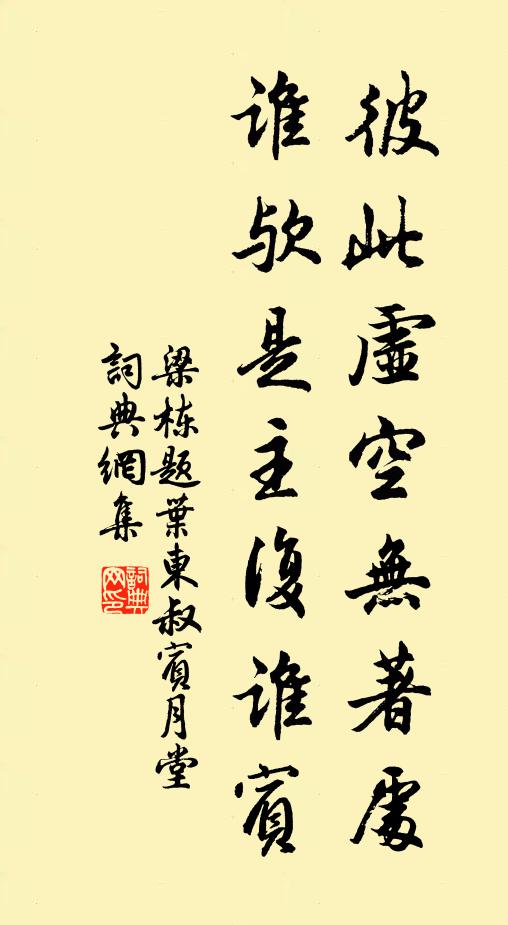 彼此虛空無著處
誰欤是主復誰賓
梁栋题葉東叔賓月堂
詞典網集
詞典网印